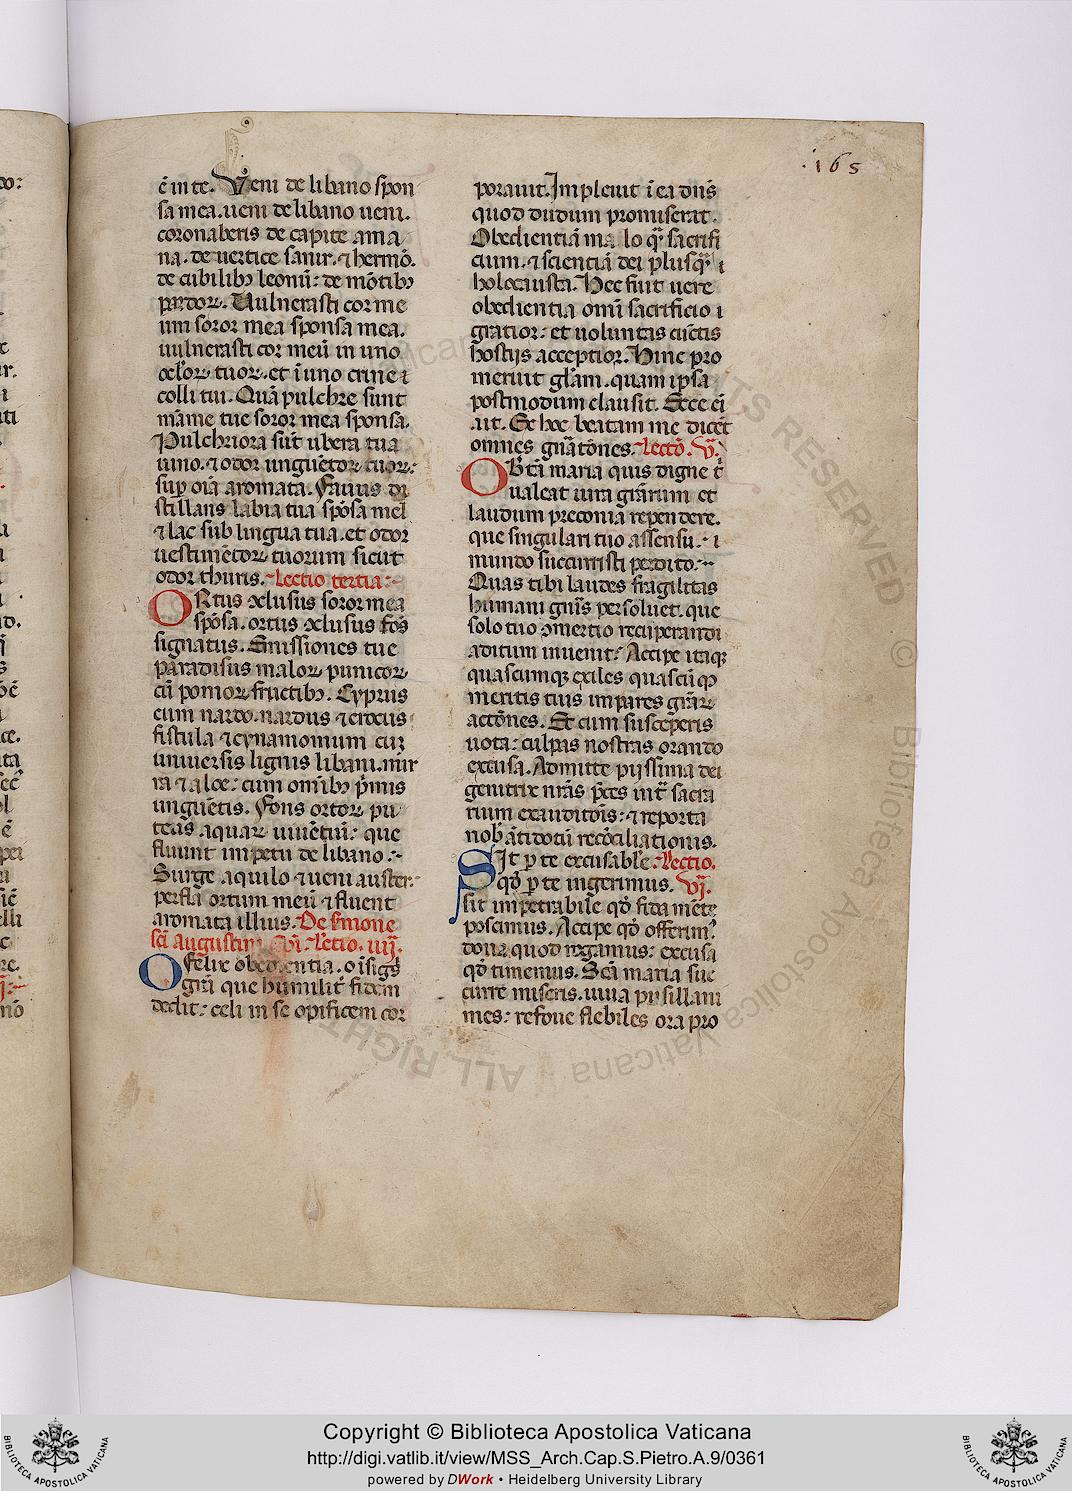 .165
ē in te. Veni de libano spon
sa mea. ueni de libano ueni.
coronaberis de capite ama
na. de uertice sanir. ⁊ hermō.
de cubilibꝫ leonū: de mōtibꝫ
pardoꝝ. Vulnerasti cor me
um soror mea sponsa mea.
uulnerasti cor meū in uno
ocl'oꝝ tuoꝝ. et ī uno crine
colli tui. Quā pulchre sunt
māme tue soror mea sponsa.
Pulchriora sūt ubera tua
uino. ⁊ odor unguētoꝝ tuoꝝ:
suꝑ oīa aromata. Fauus di
stillans labia tua spōsa mel
⁊ lac sub lingua tua. et odor
uestimētoꝝ tuorum sicut
odor thuris. Lectio tertia:
ORtus ↄclusus soror mea
spōsa. ortus ↄclusus fōs
signatus. Emissiones tue
paradisus maloꝝ punicoꝝ
cū pomoꝝ fructibꝫ. Cyprus
cum nardo. nardus ⁊ crocus
fistula ⁊ cynamomum cuꝫ
uniuersis lignis libani. mir
ra ⁊ aloe: cum omībꝫ p̄mis
unguētis. Fons ortoꝝ pu
teus aquaꝝ uiuētiū: que
fluunt impetu de libano:
Surge aquilo ⁊ ueni auster:
perfla ortum meū ⁊ fluent
aromata illius. De s̄mone
sc̄i augustini Lectio. iiij.
O felix obedientia. o īsigꝰ
gr̄a que humilit̄ fidem
dedit: celi in se opificem cor
porauit. Impleuit ī ea dn̄s
quod dudum promiserat.
Obedientiā malo qꝫ sacrifi
cium. ⁊ scientiā dei plusqꝫ
holocausta. Hec fuit uere
obedientia omī sacrificio
gratior: et uoluntas cūctis
hostijs acceptior. Hinc pro
meruit gl'am. quam ipsa
postmodum clausit. Ecce eī
.ait. Ex hoc beatam me dicēt
omnes gn̄atōnes. Lectō. v.
O Bt̄a maria quis digne t̄
ualeat iura gr̄arum et
laudum preconia rependere.
que singulari tuo assensu.
mundo succurristi perdito:
Quas tibi laudes fragilitas
humani gn̄is persoluet. que
solo tuo ↄmertio recuperandi
aditum inuenit: Accipe itaqꝫ
quascumqꝫ exiles quascūqꝫ
meritis tuis impares gr̄aꝝ
actōnes. Et cum susceperis
uota: culpas nostras orando
excusa. Admitte pijssima dei
genitrix nr̄as p̄ces int̄ sacra
rium exauditōis: ⁊ reporta
nob̄ ātidotū recōciliationis.
Sit ꝑ te excusabile: Lectio.
qd̄ ꝑ te ingerimus. vj.
fit impetrabile qd̄ fida mēte
poscimus. Accipe qd̄ offerimꝰ
dona quod rogamus: excusa
qd̄ timemus. Sc̄a maria suc
curre miseris. iuua pusillani
mes: refoue flebiles ora pro
Copyright © Biblioteca Apostolica Vaticana
http://digi.vatlib.it/view/MSS_Arch.Cap.S.Pietro.A.9/0361
powered by DWork • Heidelberg University Library
BIBLIOTECA APOSTOLICA VATICANA
BIBLIOTECA APOSTOLICA VATICANA